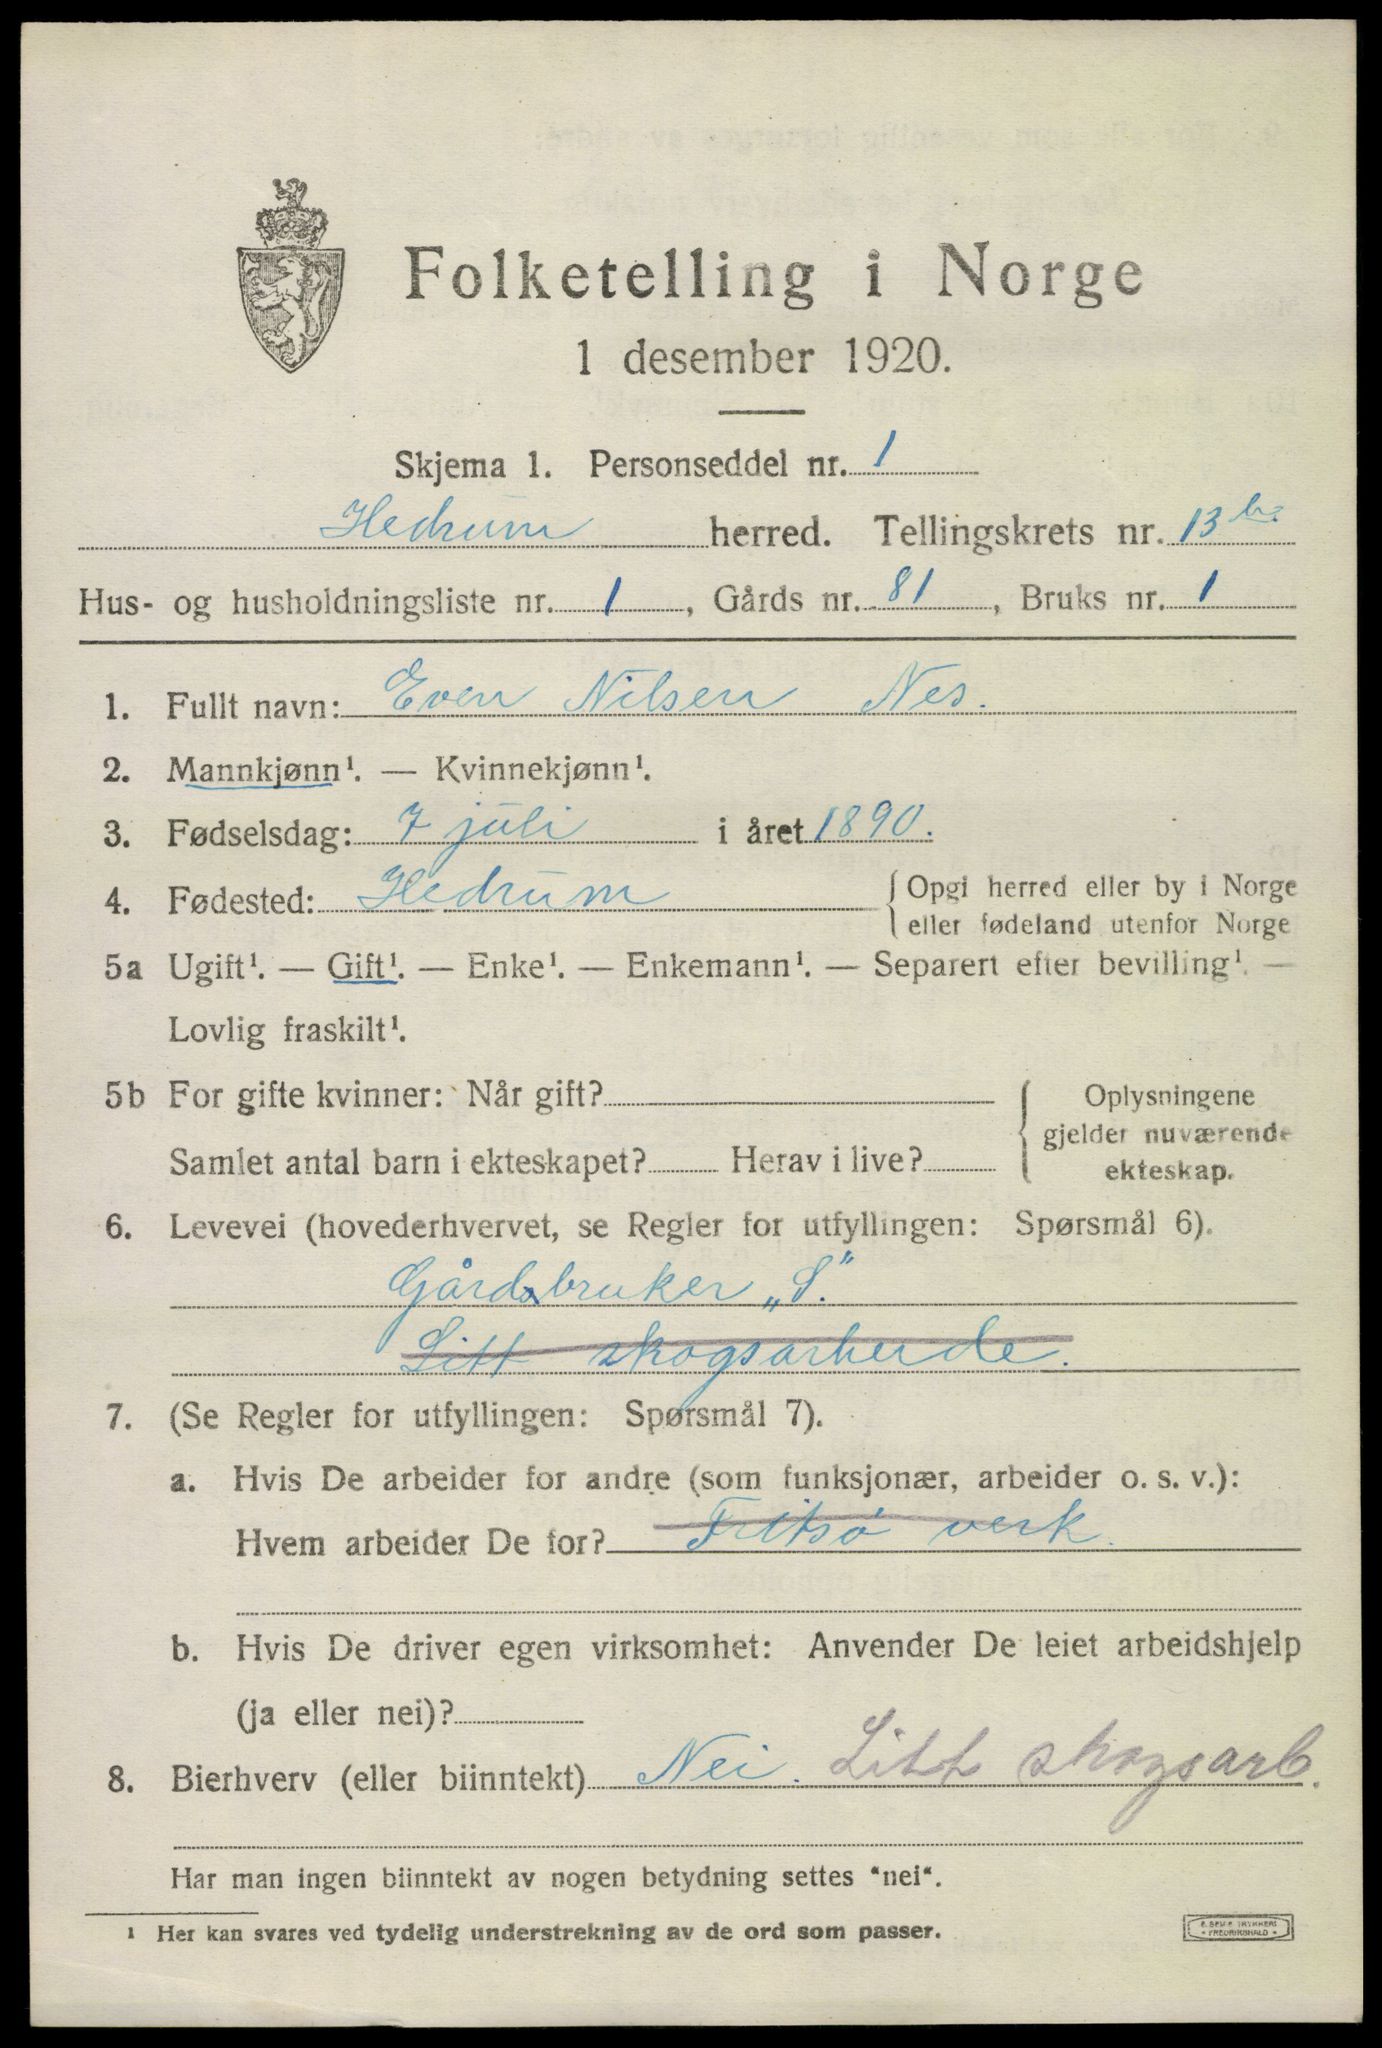 Folketelling i Norge
1 desember 1920.
Skjema 1. Personseddel nr. 1
Hedrum herred. Tellingskrets nr. 13
Hus- og husholdningsliste nr. 1, Gårds nr. 81, Bruks nr. 1
1. Fullt navn: Even Nilsen Nes.
2. Mannkjønn¹. — Kvinnekjønn¹.
3. Fødselsdag: 7 juli i året 1890.
4. Fødested: Hedrum { Opgi herred eller by i Norge
eller fødeland utenfor Norge
5a Ugift¹. — Gift¹. — Enke¹. — Enkemann¹. — Separert efter bevilling¹. —
Lovlig fraskilt¹.
5b For gifte kvinner: Når gift?
Samlet antal barn i ekteskapet? Herav i live?
{ Oplysningene
gjelder nuværende
ekteskap.
6. Levevei (hovederhvervet, se Regler for utfyllingen: Spørsmål 6).
Gårdsbruker „S."
Litt skogsarbeide.
7. (Se Regler for utfyllingen: Spørsmål 7).
a. Hvis De arbeider for andre (som funksjonær, arbeider o. s. v.):
Hvem arbeider De for? Fritsø verk.
b. Hvis De driver egen virksomhet: Anvender De leiet arbeidshjelp
(ja eller nei)?
8. Bierhverv (eller biinntekt) Nei. Litt skogsarb.
Har man ingen biinntekt av nogen betydning settes “nei“.
¹ Her kan svares ved tydelig understrekning av de ord som passer.
FREDRIKSHALD